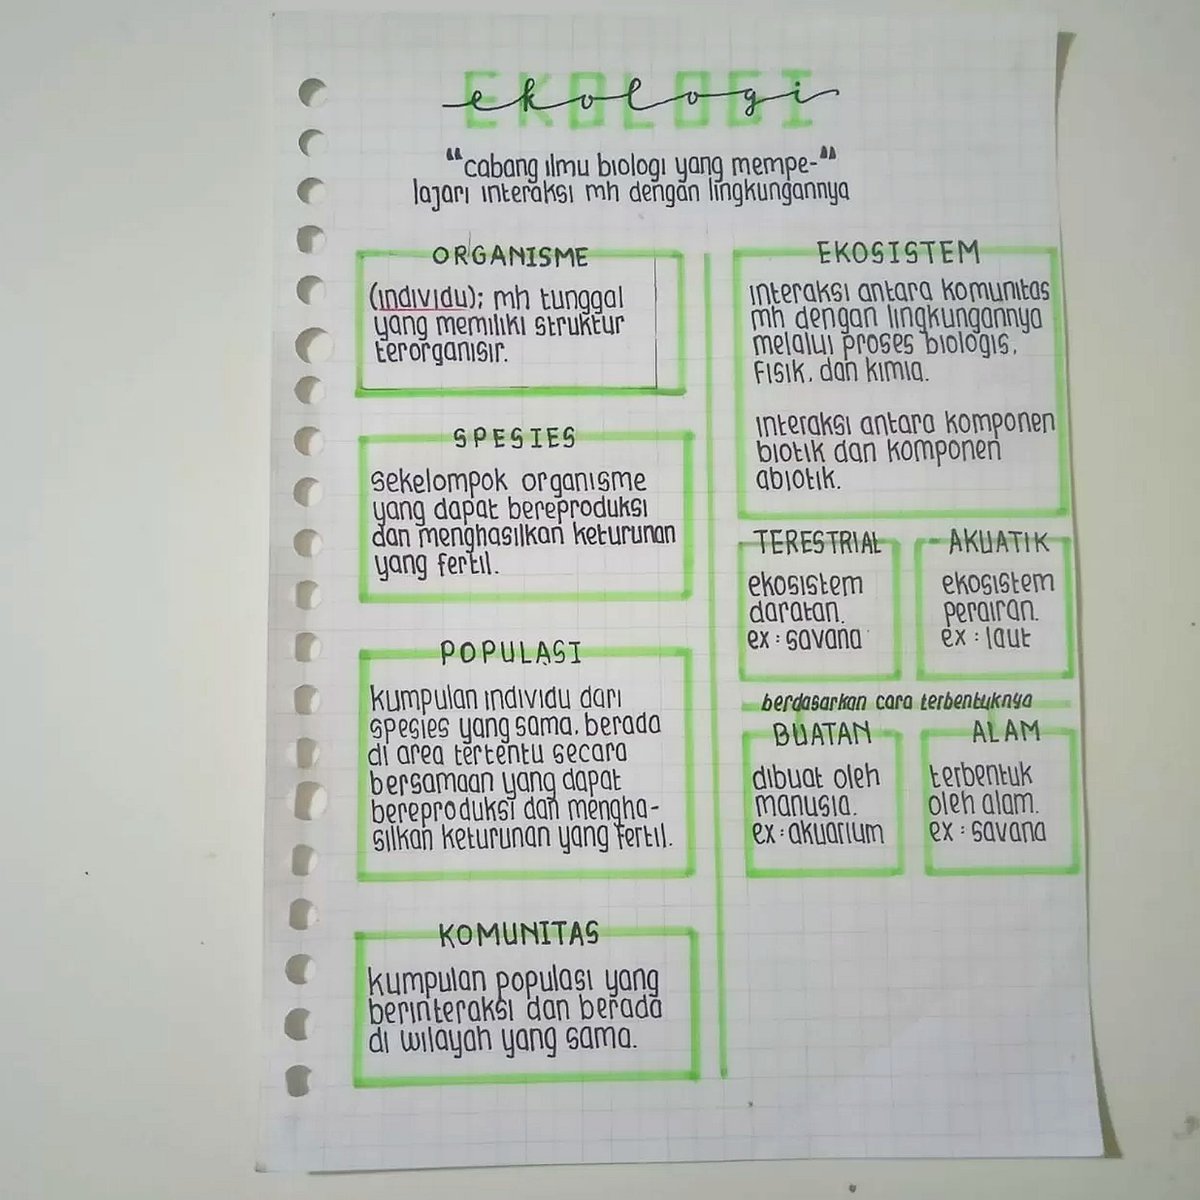 EKOLOGI
ekologi
“cabang ilmu biologi yang mempe-”
lajari interaksi mh dengan lingkungannya
ORGANISME
(individu); mh tunggal
yang memiliki struktur
terorganisir.
SPESIES
sekelompok organisme
yang dapat bereproduksi
dan menghasilkan keturunan
yang fertil.
POPULASI
kumpulan individu dari
spesies yang sama, berada
di area tertentu secara
bersamaan yang dapat
bereproduksi dan mengha-
silkan keturunan yang fertil.
KOMUNITAS
kumpulan populasi yang
berinteraksi dan berada
di wilayah yang sama.
EKOSISTEM
interaksi antara komunitas
mh dengan lingkungannya
melalui proses biologis,
fisik, dan kimia.
interaksi antara komponen
biotik dan komponen
abiotik.
TERESTRIAL
ekosistem
daratan.
ex : savana
AKUATIK
ekosistem
perairan.
ex : laut
berdasarkan cara terbentuknya
BUATAN
dibuat oleh
manusia.
ex : akuarium
ALAM
terbentuk
oleh alam.
ex : savana